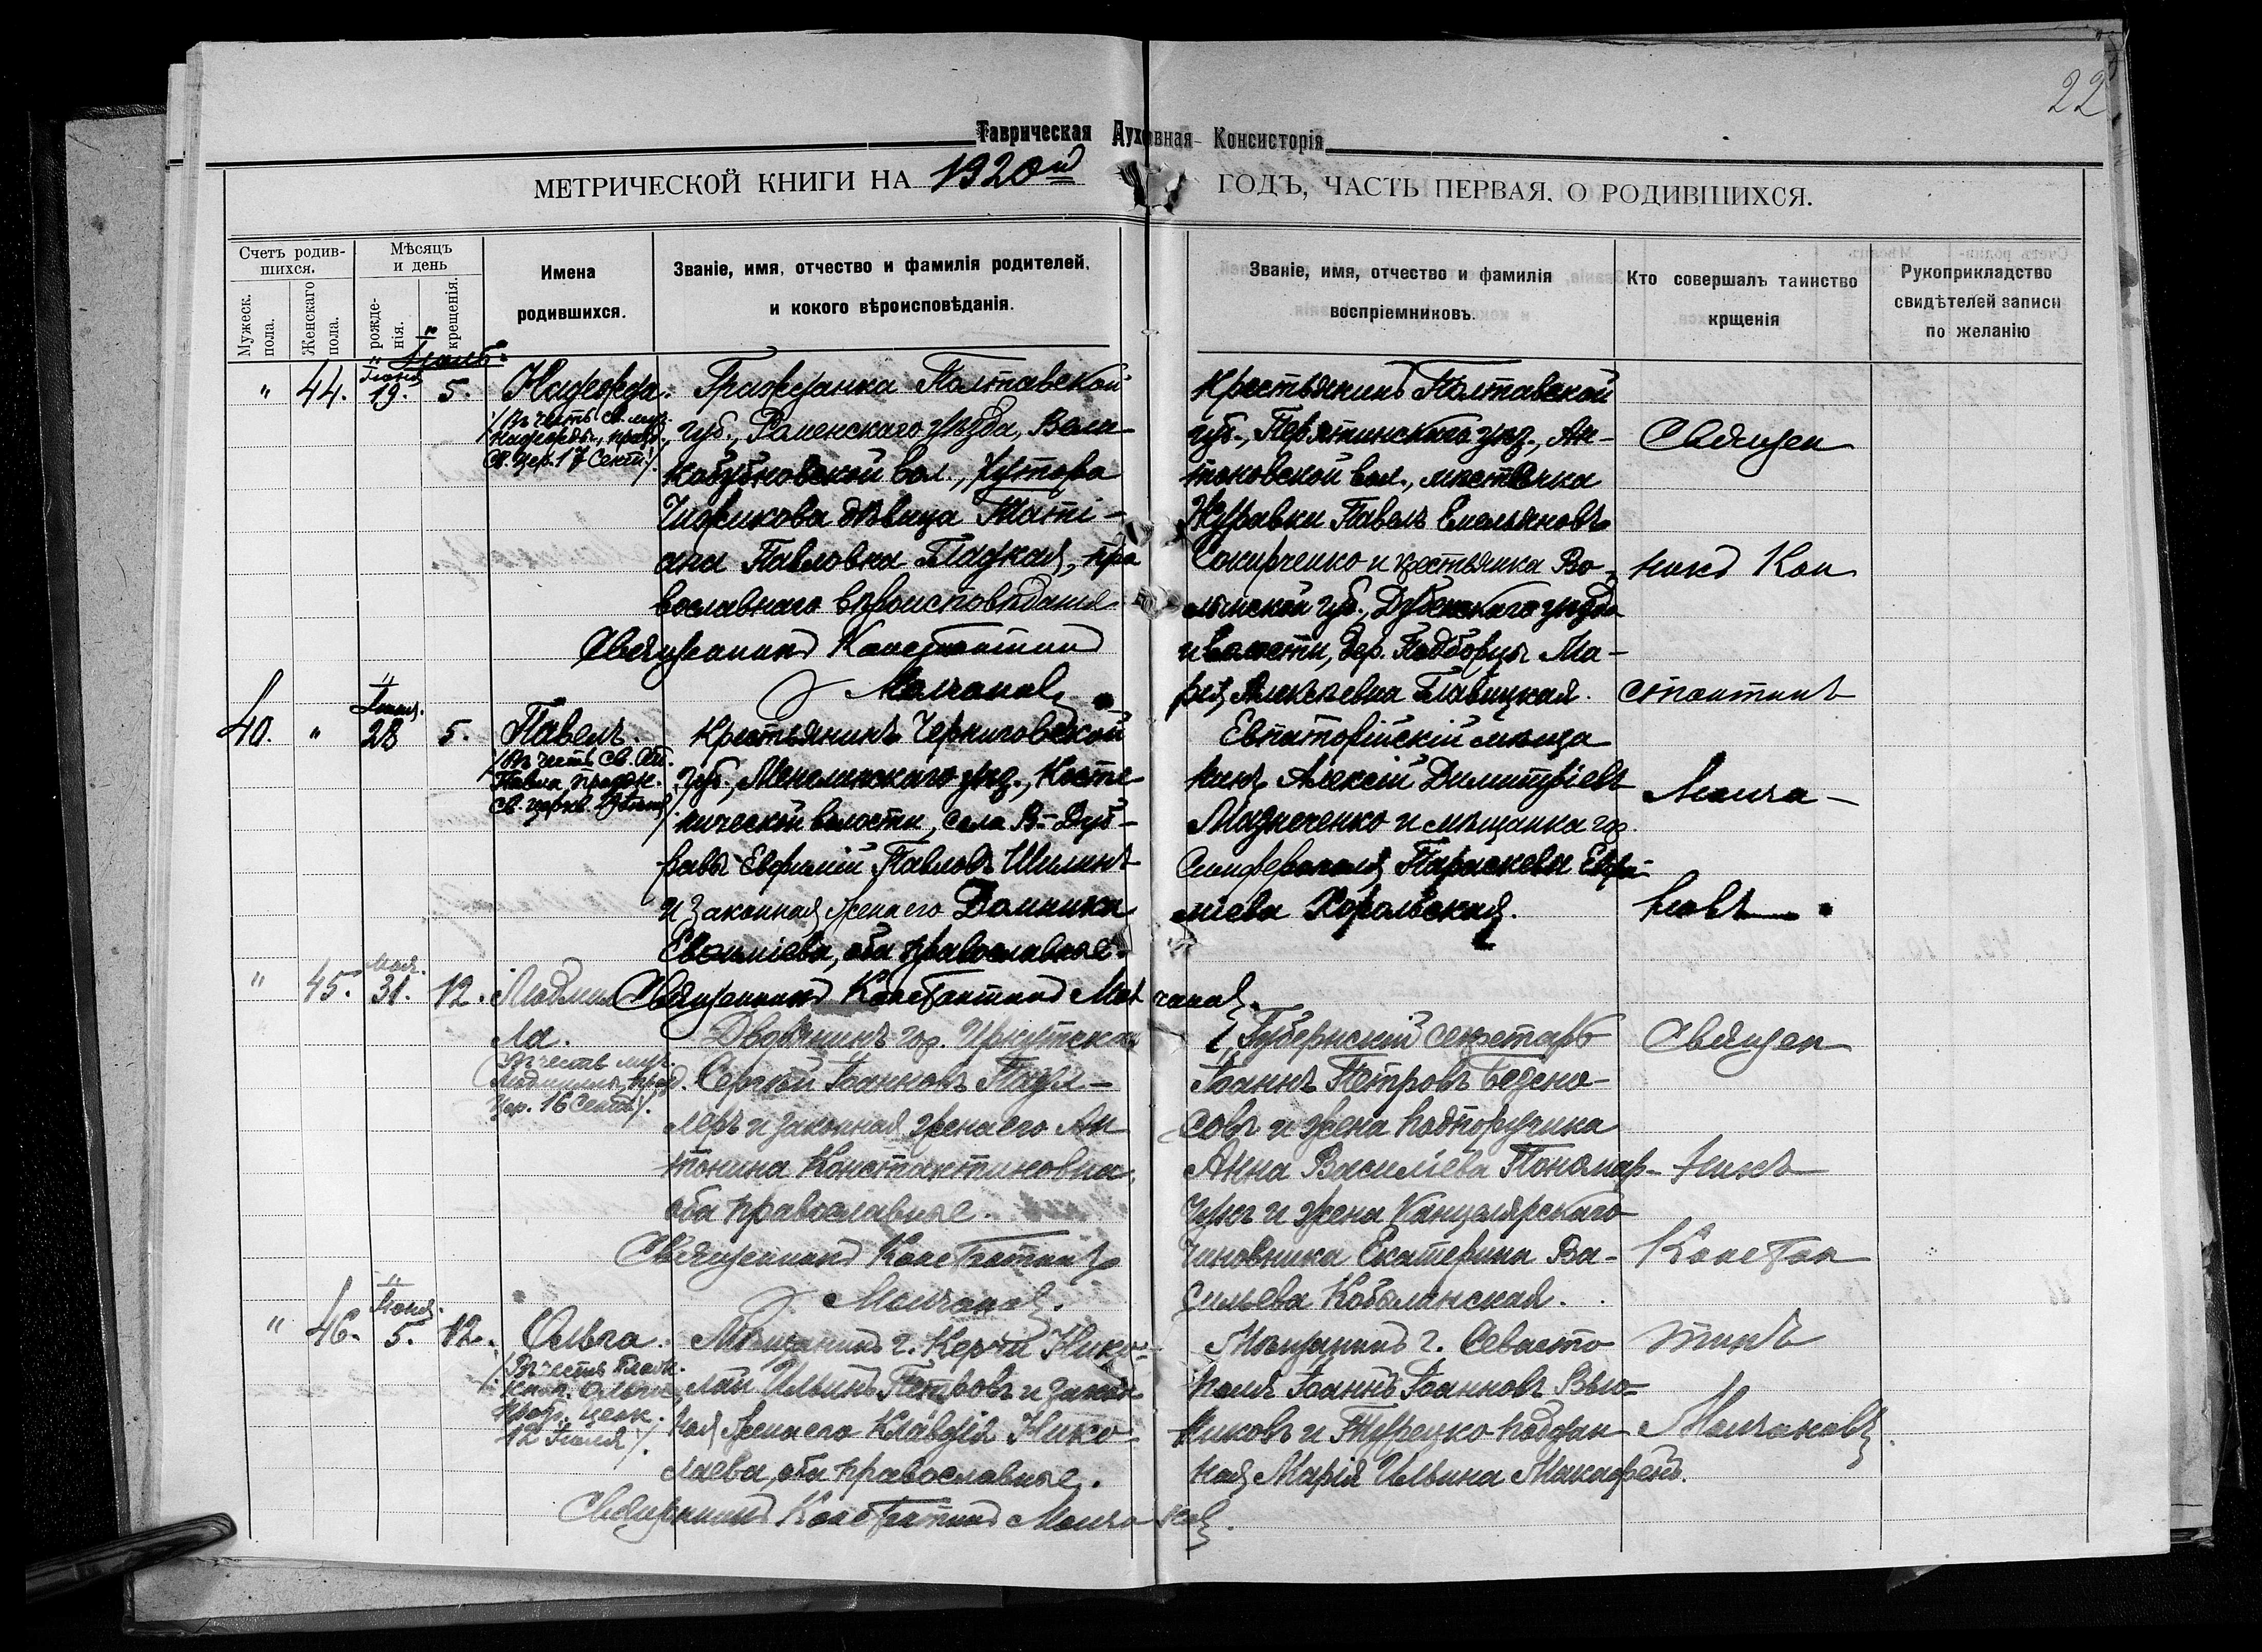 22
Таврическая Духовная Консисторія
МЕТРИЧЕСКОЙ КНИГИ НА 1920й ГОДЪ, ЧАСТЬ ПЕРВАЯ, О РОДИВШИХСЯ.
Счетъ родив-
шихся.
Мужеск.
пола.
Женскаго
пола.
Мѣсяцъ
и день
рожде-
нія.
крещенія.
Имена
родившихся.
Званіе, имя, отчество и фамилія родителей,
и кокого вѣроисповѣданія.
Званіе, имя, отчество и фамилія
воспріемниковъ.
Кто совершалъ таинство
крщенія
Рукоприкладство
свидѣтелей записи
по желанію
Іюль
" 44. Іюня 19. 5. Надежда.
/Въ честь св. муч.
Надежды, празд.
Св. Цер. 17 Сент./
Гражданка Полтавской
губ., Роменскаго уѣзда,
вол., Хутора
дѣвица Таті-
ана Павловна Гладкая, пра
вославнаго вѣроисповѣданія
Священникъ Константинъ
Молчановъ
Крестьянинъ Полтавской
губ., уѣз., Ан-
тоновской вол., мѣстечка
Журавки Павелъ Емельяновъ
Сокирченко и крестьянка Во-
лынской губ., Дубенскаго уѣзда
и волости, дер. Подборцы Ма-
рія Алексѣевна
Священ
никъ Кон
стантинъ
Молча-
новъ
40. " Іюня. 28 5. Павелъ.
/Въ честь Св. Ап.
Павла, праздн.
Св. церкв. 29 Іюня/
Крестьянинъ Черниговской
губ., уѣз.,
волости, села В-Дуб-
равы Евфимій Павловъ
и законная жена его Домника
Евфиміева, оба православные.
Священникъ Константинъ Молчановъ
Евпаторійскій мѣща
нинъ Алексій Димитріевъ
и мѣщанка гор.
Симферополя Параскева Евфи-
міева Хорольская.
" 45. Мая. 31. 12. Людмил
ла.
/Въ честь муч.
Людмилы, празд.
Цер. 16 Сент./
Дворянинъ гор. Иркутска
Сергѣй Іоанновъ
леръ и законная жена его Ан
тонина Константиновна,
оба православные.
Священникъ Константинъ
Молчановъ.
Губернскій секретарь
Іоаннъ Петровъ
совъ и жена подпоручика
Анна Васильева Пономар-
чукъ и жена Канцелярскаго
чиновника Екатерина Ва-
сильева Кобылянская.
Священ
никъ
Констан
тинъ
Молчановъ.
" 46. Іюня. 5. 12. Ольга.
/Въ честь
Княг. Ольги,
празд. церк.
12 Іюля/.
Мѣщанинъ г. Керчи Нико-
лай Ильинъ Петровъ и закон
ная жена его Клавдія Нико-
лаева, оба православные.
Священникъ Константинъ Молчановъ.
Мѣщанинъ г. Севасто
поля Іоаннъ Іоанновъ
никовъ и Турецко поддан
ная Марія Ильина